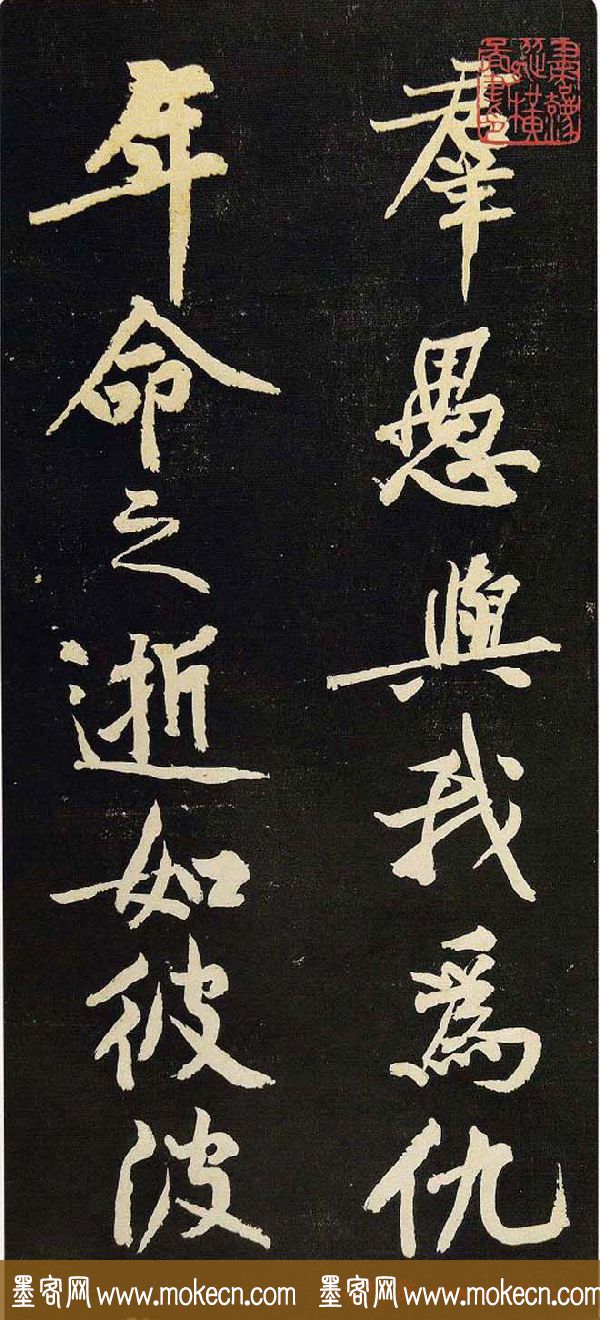 羣愚與我爲仇
年命之逝如彼波
墨客网 www.mokecn.com 墨客网 www.mokecn.com